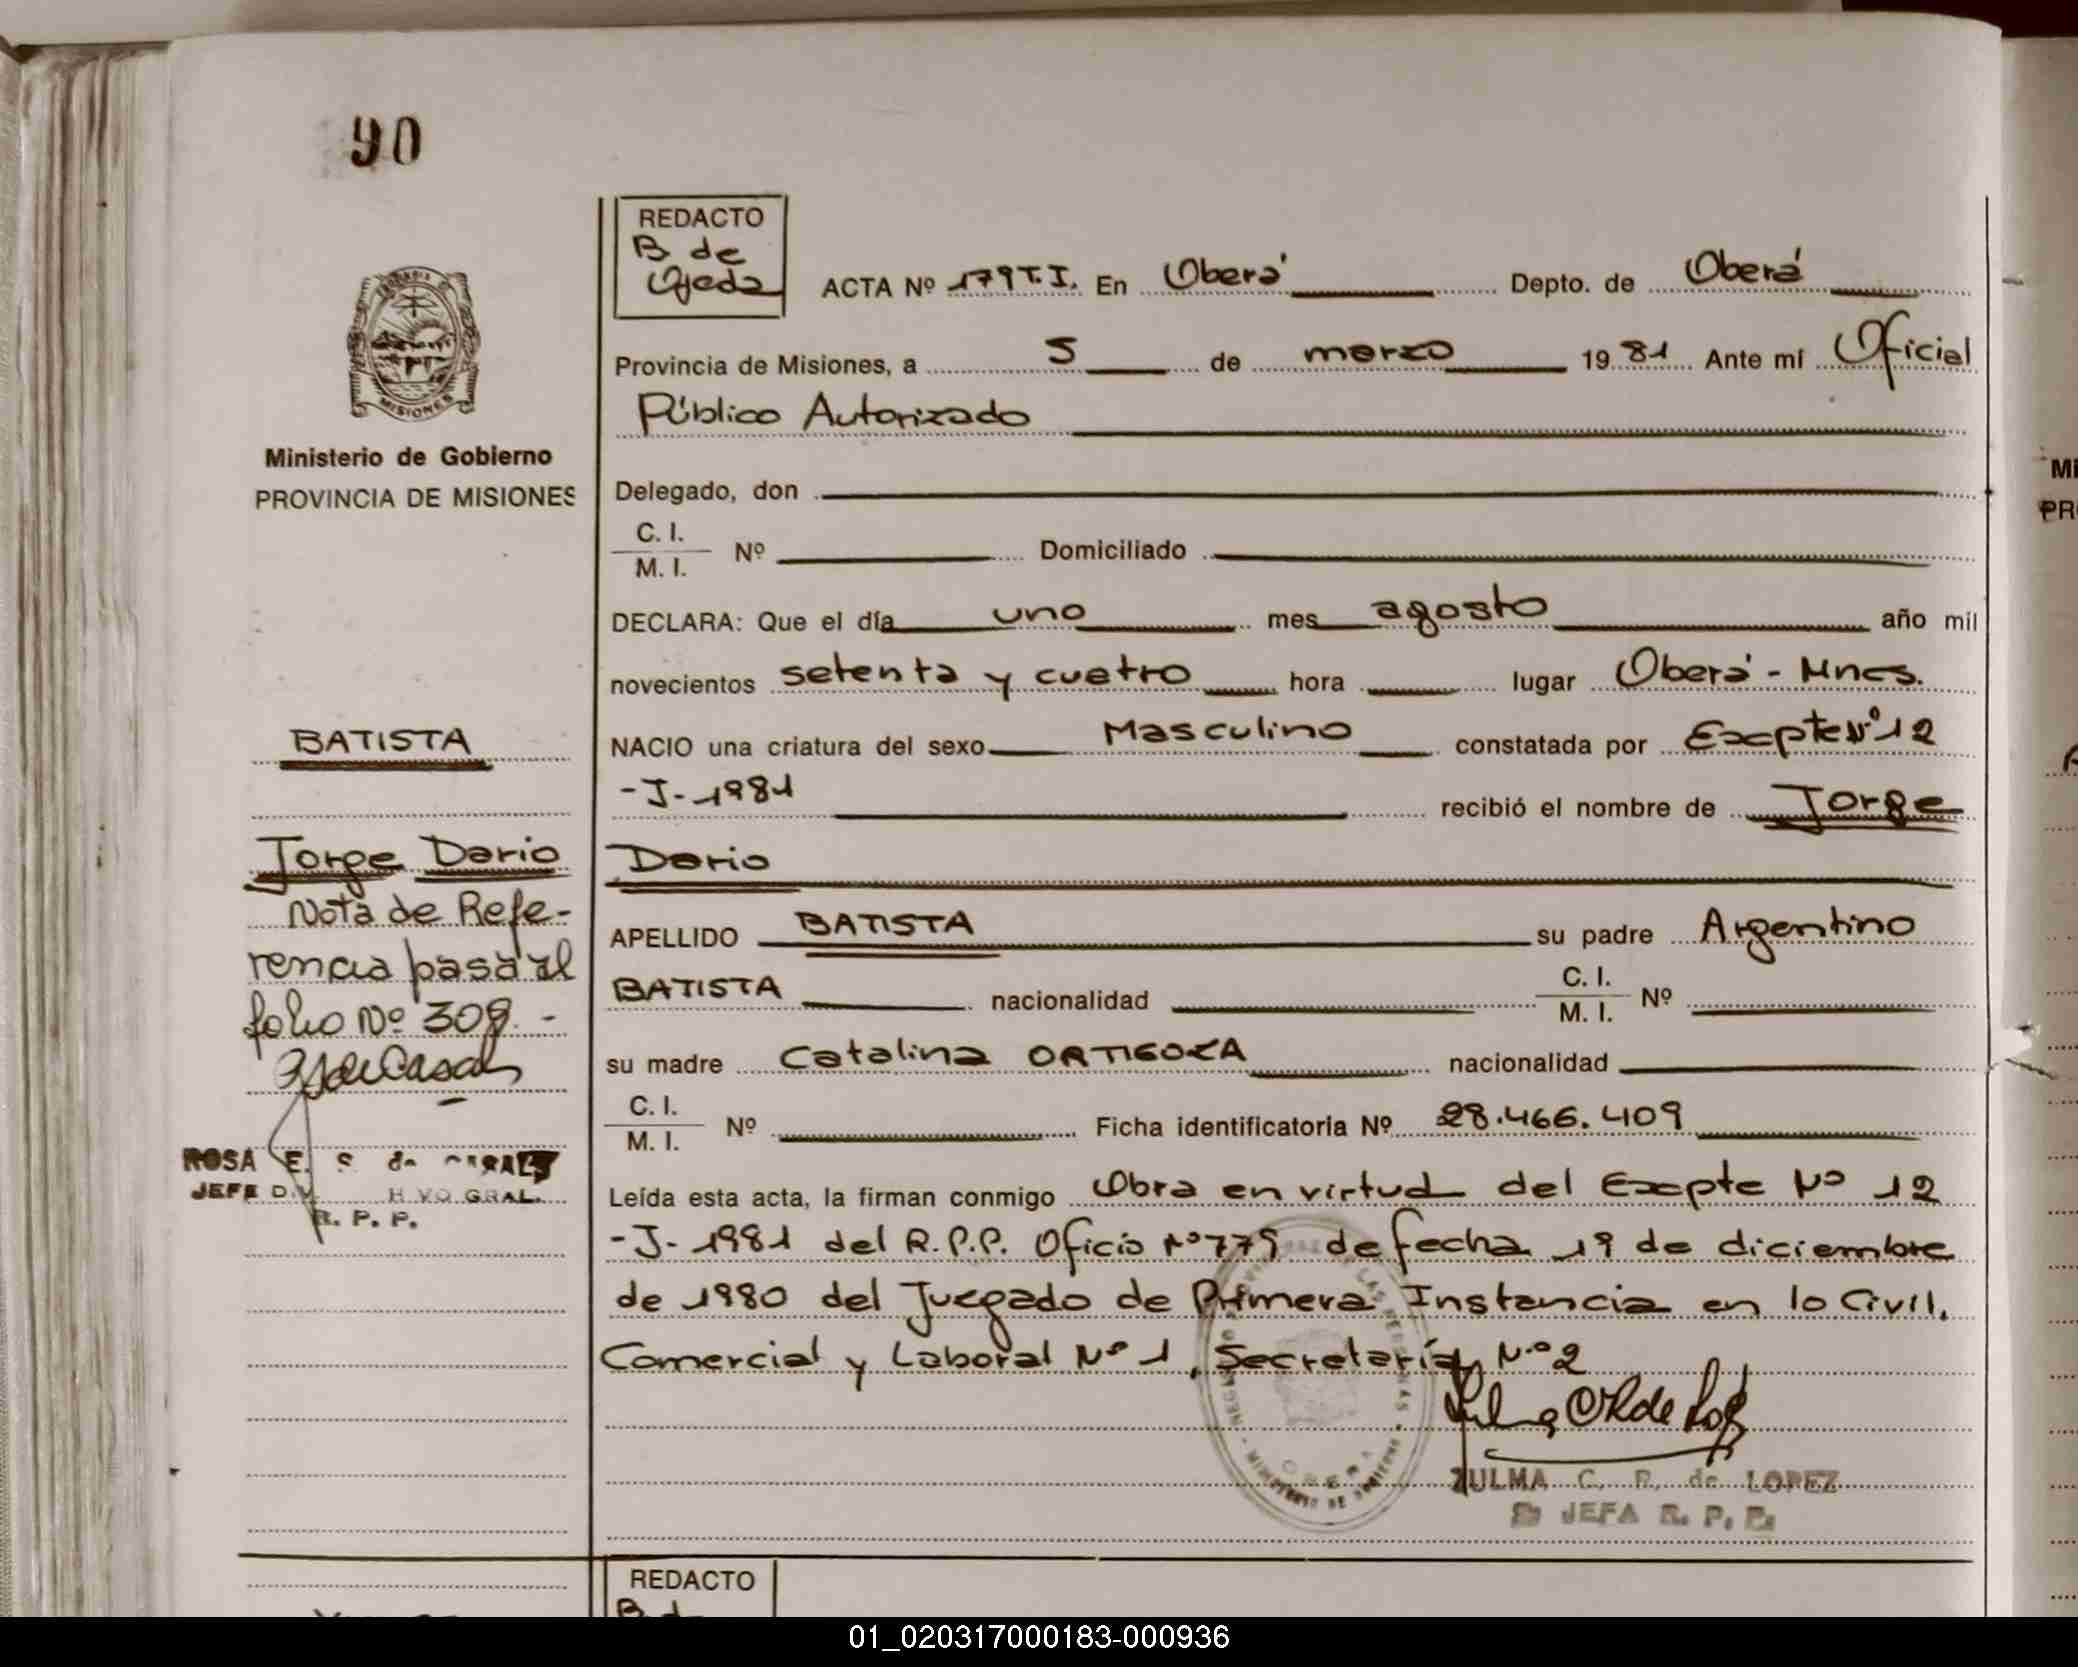 90
REDACTO
B de
Ojeda
ACTA Nº 179 T.I. En Oberá Depto. de Oberá
Provincia de Misiones, a 5 de marzo 1981 Ante mí Oficial
Público Autorizado
Ministerio de Gobierno
PROVINCIA DE MISIONES
MISIONES
Delegado, don
C. I.
M. I. Nº Domiciliado
DECLARA: Que el día uno mes agosto año mil
novecientos setenta y cuatro hora lugar Oberá - Mnes.
NACIO una criatura del sexo Masculino constatada por Excpte Nº 12
-J- 1981 recibió el nombre de Jorge
Dario
APELLIDO BATISTA su padre Argentino
BATISTA nacionalidad C. I.
M. I. Nº
su madre Catalina ORTIGOZA nacionalidad
C. I.
M. I. Nº Ficha identificatoria Nº 28.466.409
Leída esta acta, la firman conmigo Obra en virtud del Excpte Nº 12
-J- 1981 del R.P.P. Oficio Nº 779 de fecha 19 de diciembre
de 1980 del Juzgado de Primera Instancia en lo Civil,
Comercial y Laboral Nº 1, Secretaría Nº 2
ZULMA C. R. de LOPEZ
JEFA R. P. P.
BATISTA
Jorge Dario
Nota de Refe-
rencia pasa al
folio Nº 309.-
ROSA E. S. de
JEFE DIV. GRAL.
R. P. P.
REDACTO
01_020317000183-000936